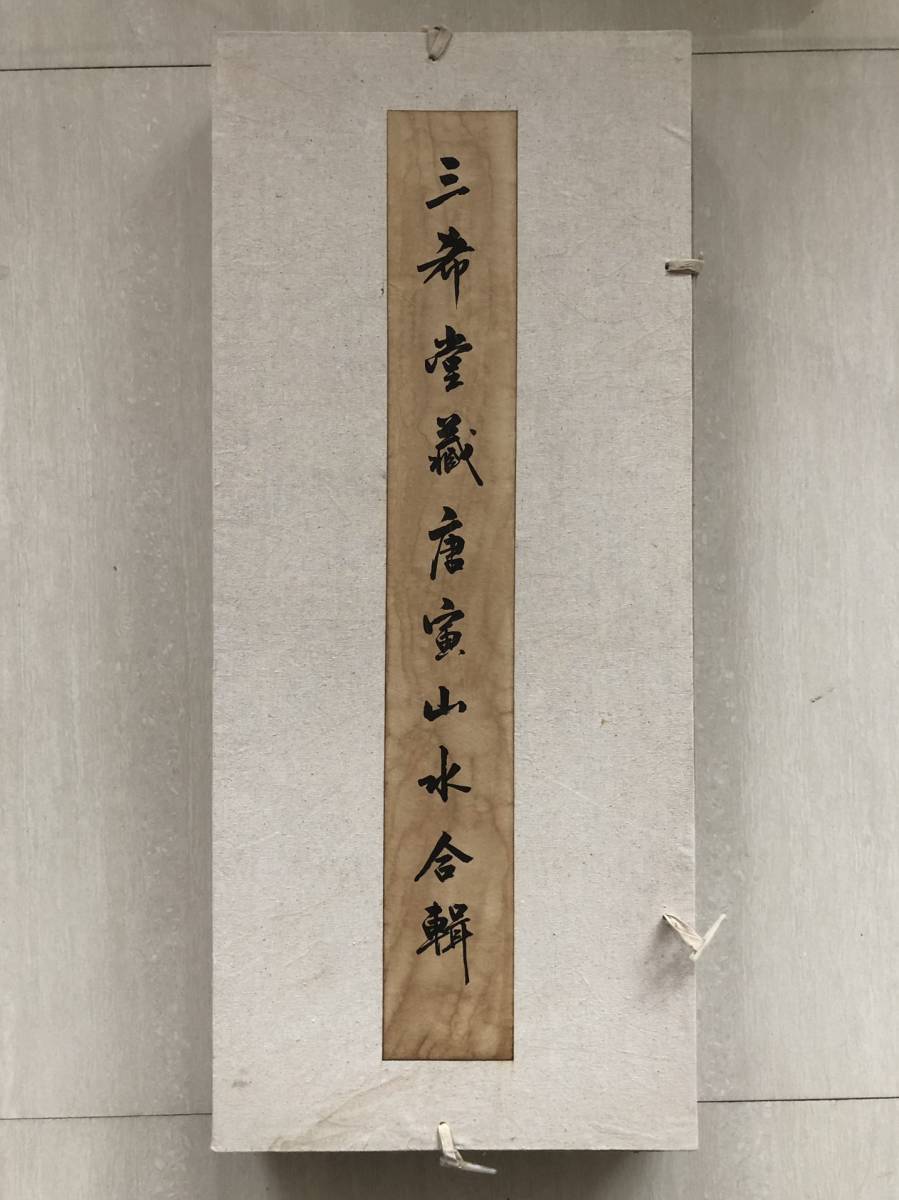 三希堂藏唐寅山水合輯